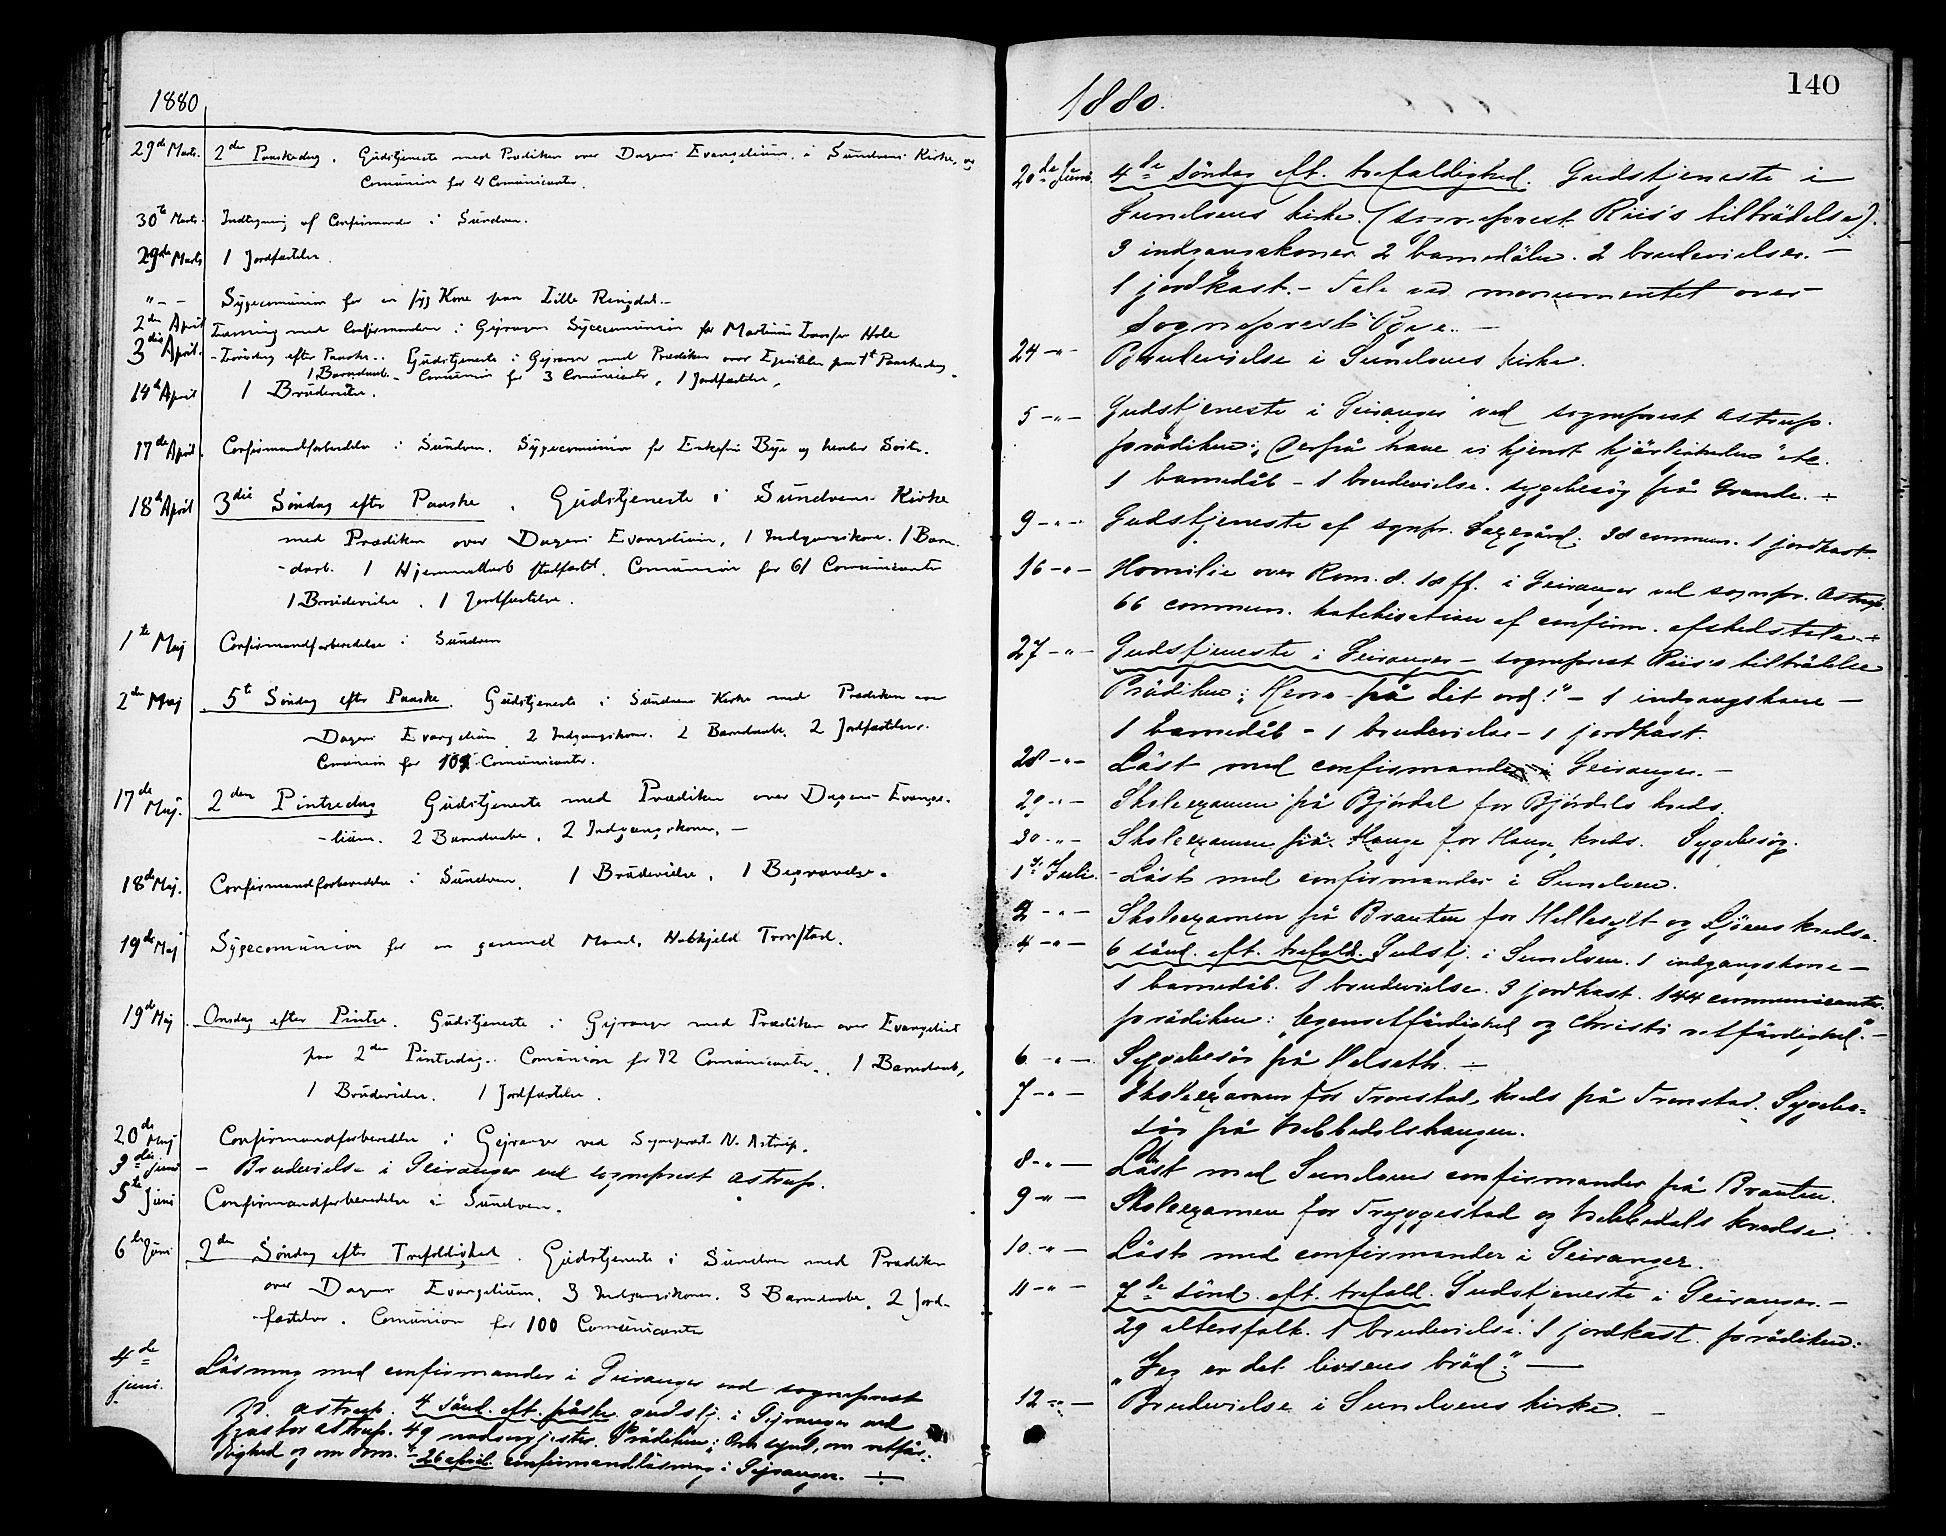 1880
29de Marts. 2den Paaskedag. Gudstjeneste med Prædiken over Dagens Evangelium i Sundvens Kirke, og
Comunion for 4 Comunicanter.
30te Marts. Indtegning af Confirmander i Sundven.
29de Marts 1 Jordfæstelse.
" - - Sygecomunion for en syg Kone paa Lille Ringdal.-
2den April Læsning med Confirmanderne i Gejranger Sygecomunion for Martinus Hole
3die April. - Lørdag efter Paaske.. Gudstjeneste i Gejranger med Prædiken over Epistelen paa 1st Paaskedag.
1 Barnedaab. - Comunion for 3 Comunicanter, 1 Jordfæstelse,
14de April 1 Brudevielse.
17de April. Confirmandforberedelse i Sundven. Sygecomunion for Enkefru Bye og hendes Søster.
18de April 3die Søndag efter Paaske. Gudstjeneste i Sundvens Kirke
med Prædiken over Dagens Evangelium, 1 Indgangskone. 1 Barne-
-daab. 1 Hjemmedaab stadfæstet. Comunion for 61 Comunicanter
1 Brudevielse. 1 Jordfæstelse.
1te Maj Confirmandforberedelse i Sundven
2den Maj 5te Søndag efter Paaske. Gudstjeneste i Sundvens Kirke med Prædiken over
Dagens Evangelium 2 Indgangskoner. 2 Barnedaabe, 2 Jordfæstelser.
Comunion for Comunicanter.
17de Maj. 2den Pintsedag Gudstjeneste med Prædiken over Dagens Evange-
-lium. 2 Barnedaabe, 2 Indgangskoner, -
18de Maj. Confirmandforberedelse i Sundven, 1 Brudevielse, 1 Begravelse.
19de Maj Sygecomunion for en gammel Mand, Tronstad.
19de Maj Onsdag efter Pintse. Gudstjeneste i Gejranger med Prædiken over Evangeliet
paa 2den Pintsedag. Comunion for 72 Comunicanter. 1 Barnedaab,
1 Brudevielse. 1 Jordfæstelse.
20de Maj Confirmandforberedelse i Gejranger ved Sognepræst N. Astrup.
3die juni - Brudevielse i Geiranger ved sognepræst Astrup.
5te Juni Confirmandforberedelse i Sundven.
6te Juni 2den Søndag efter Trefoldighed. Gudstjeneste i Sundven med Prædiken
over Dagens Evangelium, 3 Indgangskoner. 3 Barnedaabe, 2 Jord-
-fæstelser. Comunion for 100 Comunicanter
4de juni. Läsning med confirmander i Geiranger ved sognepræst
N. Astrup. 4 sönd. eft. påske gudstj. i Gejranger ved
pastor Astrup. 49 nadvergjester. Prädiken: Om synd, om retfär-
dighed og om dom. - 26 april confirmandläsning i Gejranger. ÷
140
1880.
20de Juni. 4de söndag eft. trefoldighed. Gudstjeneste i
Sundvens kirke. (sognepræst Riis's tilträdelse).
3 indgangskoner. 2 barnedåbe. 2 brudevielser. -
1 jordkast. - Tale ved monumentet over
sognepræst Bye. -
24 -"- Brudevielse i Sundvens kirke.
5 -"- Gudstjeneste i Geiranger ved sognepræst Astrup.
prädiken: "Derpå have vi kjendt kjärligheden" etc.
1 barnedåb - 1 brudevielse. sygebesög på Grande. ÷
9 -"- Gudstjeneste af sognpr. 38 commun. 1 jordkast.
16 -"- Homilie over Rom. 8. 18 ff. i Geiranger ved sognpr. Astrup
66 commun. katekisation af confirm. afskedstale. ÷
27 -"- Gudstjeneste i Geiranger - sognepræst Riis's tilträdelse
Prädiken: "Herre - på dit ord!" - 1 indgangskone -
1 barnedåb - 1 brudevielse - 1 jordkast.
28 -"- Läst med confirmander i Geiranger. -
29 -"- Skoleexamen på Bjørdal for Bjørdals kreds.
30 -"- Skoleexamen på Hauge for Hauge kreds. Sygebesög.
1ste Juli. - Läst med confirmander i Sundven.
2 -"- Skoleexamen på Brauten for Hellesylt og Ljöens kredse.
4 -"- 6 sönd. eft. trefold. Gudstj. i Sundven. 1 indgangskone -
1 barnedåb. 1 brudevielse. 3 jordkast. 144 communicanter.
prädiken: "Egenretfärdighed og Christi retfärdighed". -
6 -"- Sygebesög på Helseth. ÷
7 -"- Skoleexamen for Tronstad kreds på Tronstad. Sygebe-
sög på Nebbedalshaugen.
8 -"- Läst med Sundvens confirmander på Brauten.
9 -"- Skoleexamen for Tryggestad og Nebbedals kredse
10. -"- Läst med confirmander i Geiranger.
11 -"- 7de sönd. eft. trefold. Gudstjeneste i Geiranger. -
29 altersfolk. 1 brudevielse. 1 jordkast. prädiken:
"Jeg er det livsens bröd". -
12 -"- Brudevielse i Sundvens kirke. -